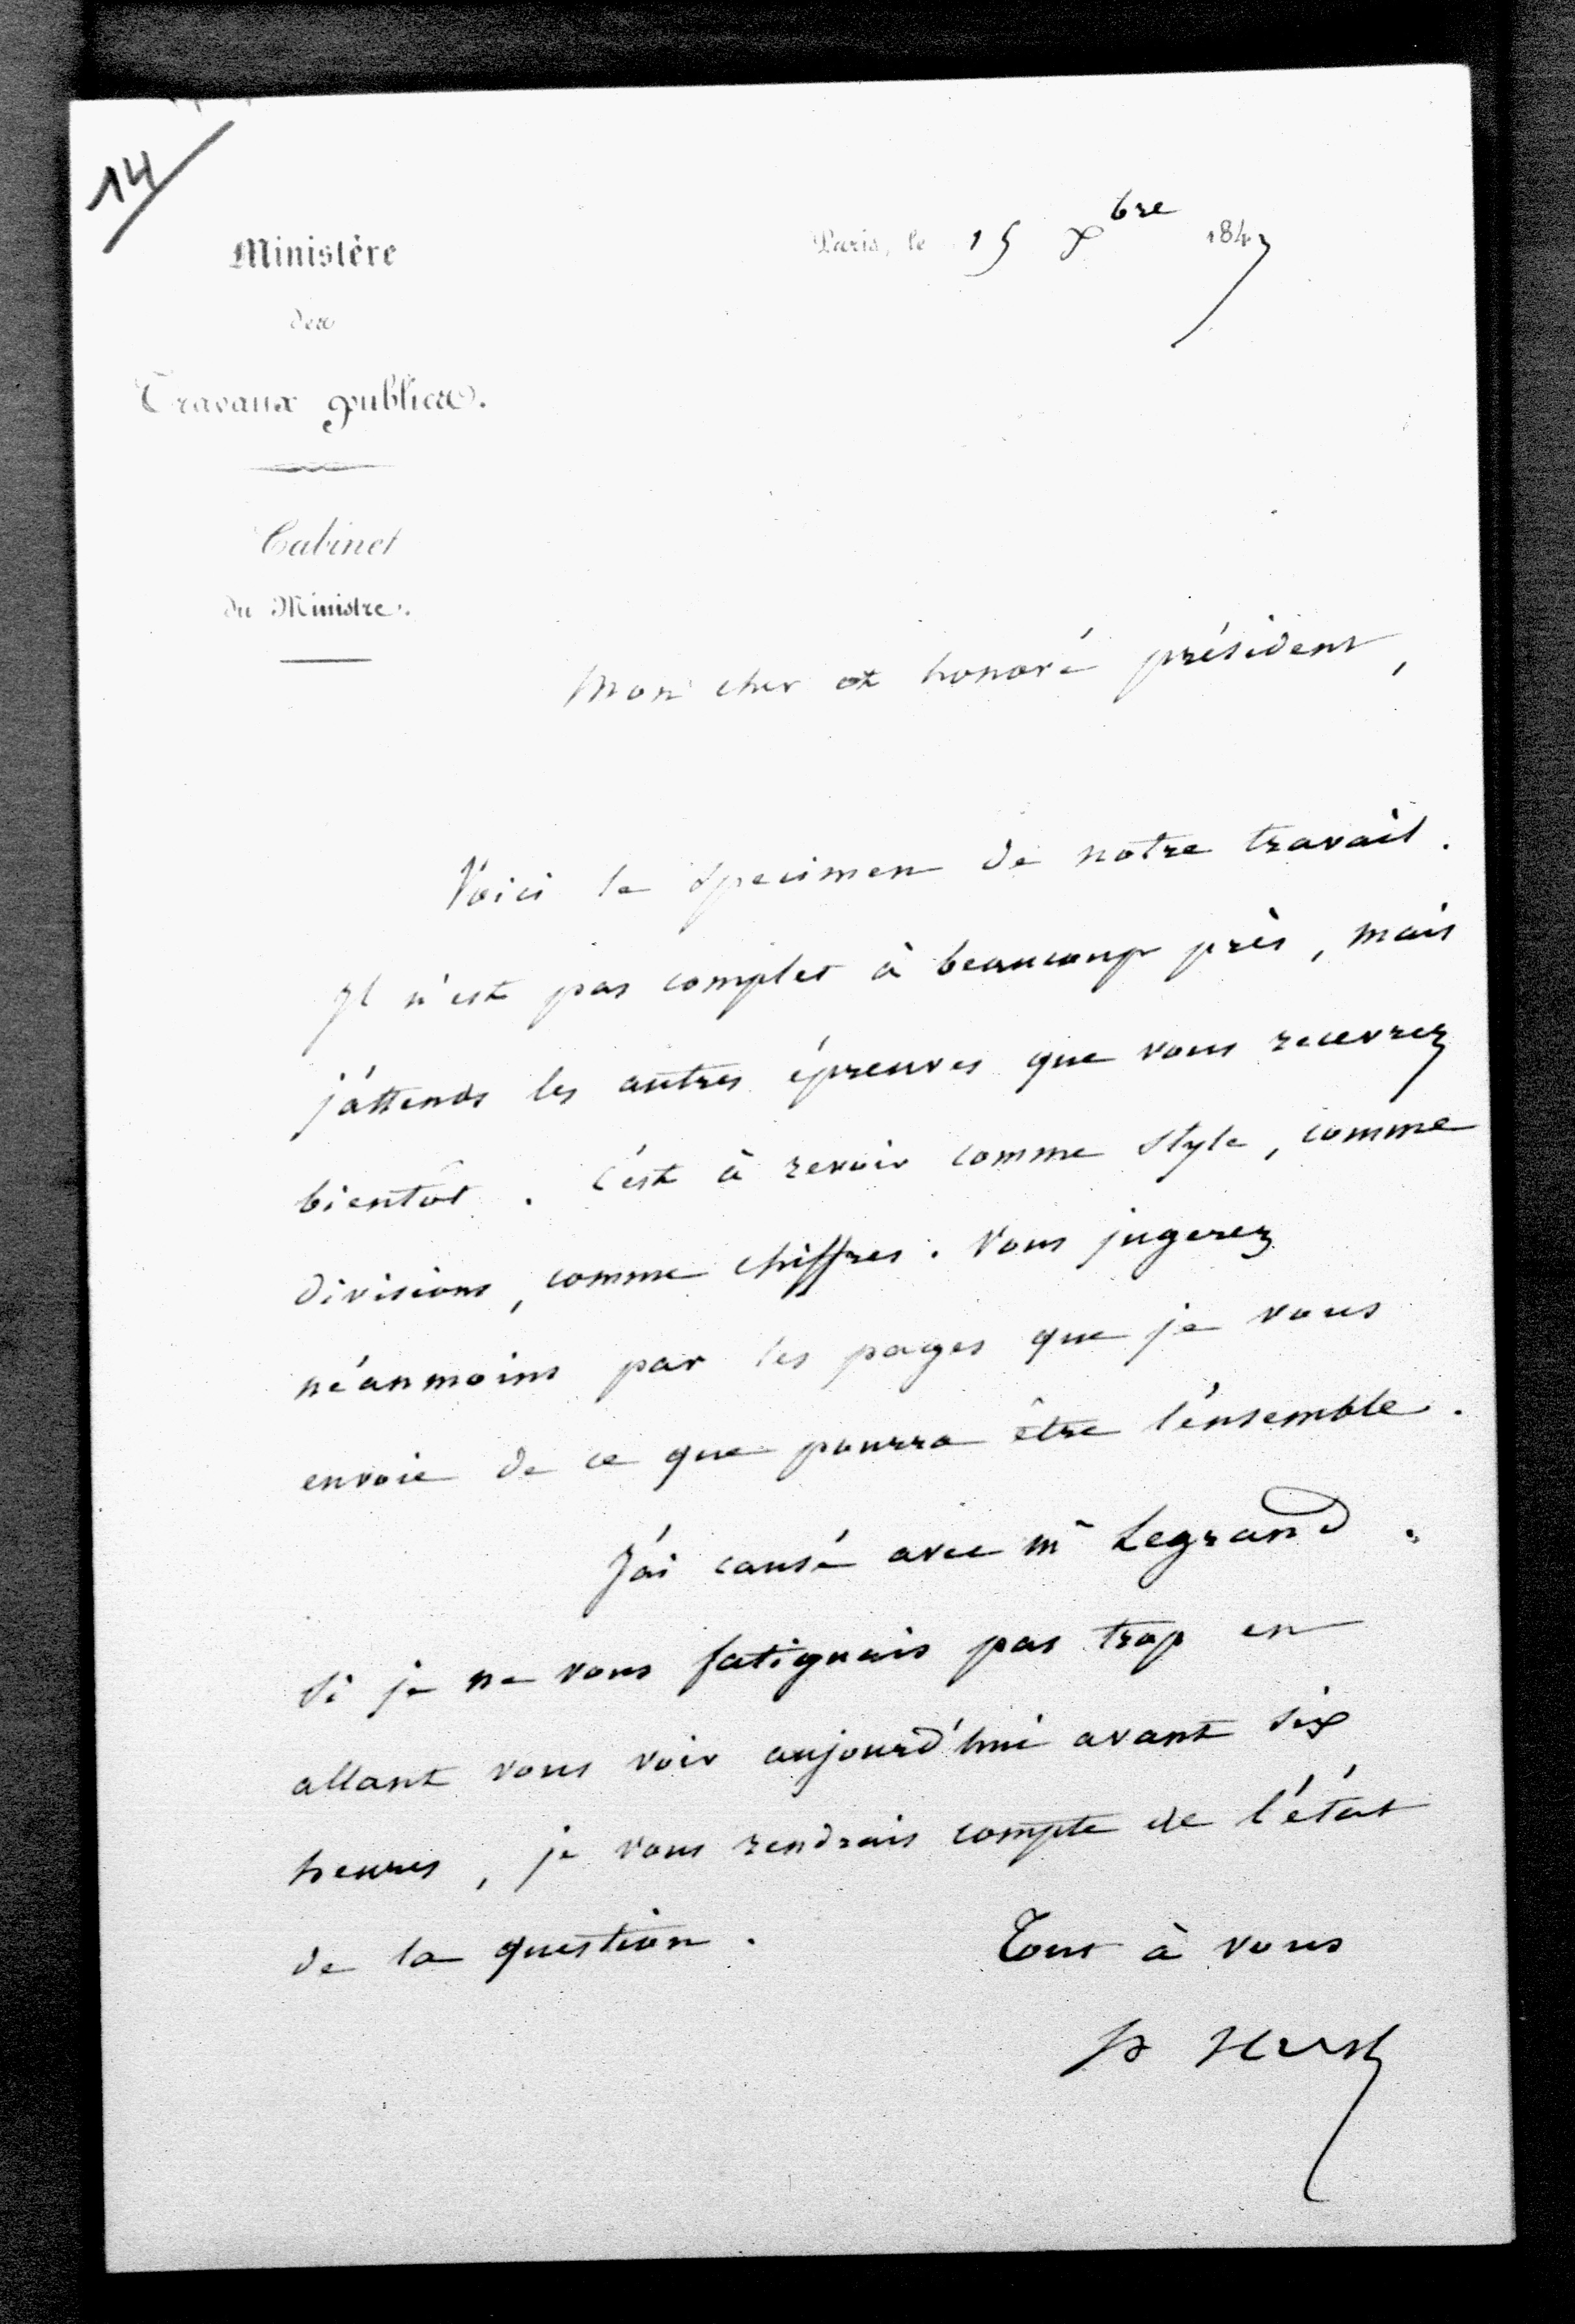 14
Ministère
des
Travaux publics.
Cabinet
du Ministre.
Paris, le 15 Xbre 1847
Mon cher et honoré président,
Voici le specimen de notre travail.
Il n'est pas complet à beaucoup près, mais
j'attends les autres épreuves que vous recevrez
bientôt. C'est à revoir comme style, comme
divisions, comme chiffres. Vous jugerez
néanmoins par les pages que je vous
envoie de ce que pourra être l'ensemble.
J'ai causé avec Mr Legrand.
Si je ne vous fatiguais pas trop en
allant vous voir aujourd'hui avant six
heures, je vous rendrais compte de l'état
de la question.
Tout à vous